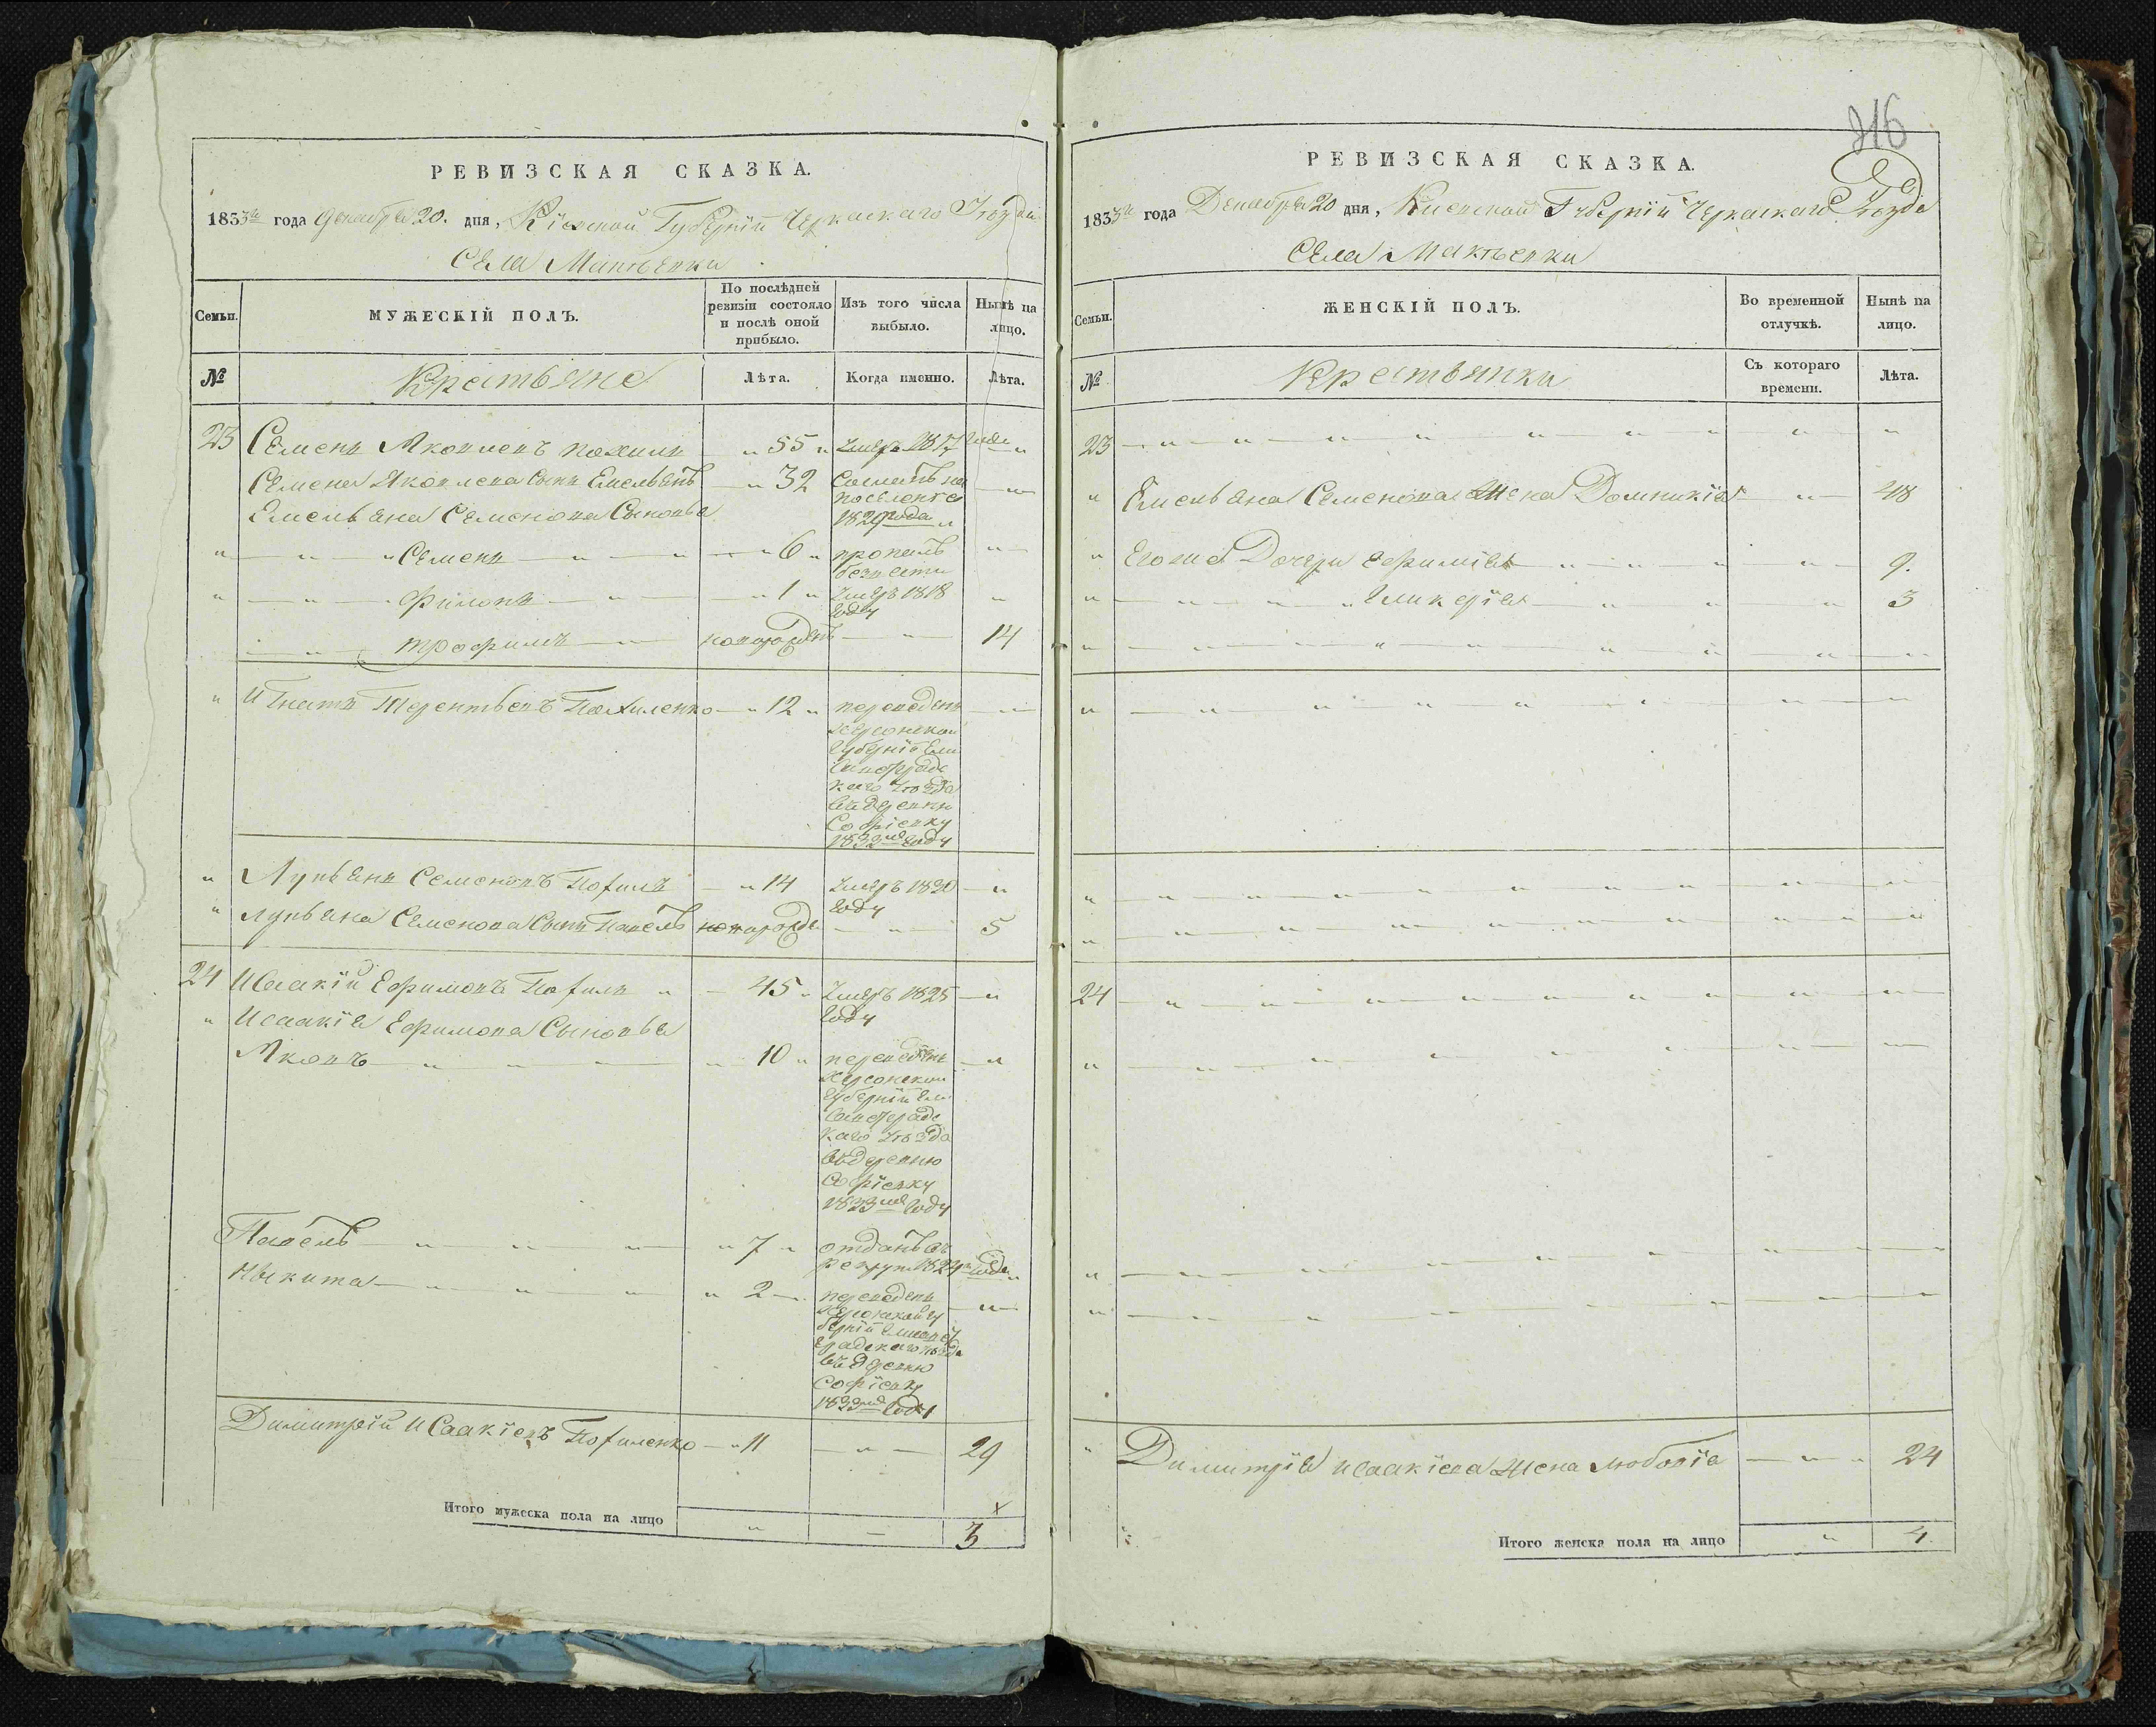 РЕВИЗСКАЯ СКАЗКА.
1833го года Декабря 20. дня, Кіевской Губерніи Черкаскаго Уезда
Села Мактьевки
Семьи.
МУЖЕСКІЙ ПОЛЪ.
По послѣдней ревизіи состояло и послѣ оной прибыло.
Изъ того числа выбыло.
Нынѣ на лицо.
№
Крестьяне
Лѣта.
Когда именно.
Лѣта.
23 Семенъ Яковлевъ Похилъ 55 Умеръ 1817 года
Семена Яковлева Сынъ Емельянъ 32 Сосланъ на поселенїе 1829 года
Емельяна Семенова Сыновья
Семенъ 6 пропалъ безвести
Филонъ 1 Умеръ 1818 году
Трофимъ новорожденъ 14
Игнатъ Терентьевъ Похиленко 12 переведенъ Херсонской Губерніи Елисаветградскаго Уезда въ деревню Софіевку 1832го году
Лукьянъ Семеновъ Похилъ 14 Умеръ 1830 году
Лукьяна Семенова Сынъ Павелъ новорожде 5
24 Исаакій Ефимовъ Похилъ 45 Умеръ 1825 году
Исаакія Ефимова Сыновья
Яковъ 10 переведенъ Херсонской Губерніи Елисаветградскаго Уезда въ деревню Софіевку 1833го году
Павелъ 7 отданъ въ рекруты 1824го года
Никита 2 переведенъ Херсонской Губерніи Елисаветградскаго Уезда въ деревню Софіевку 1833го году
Димитрій Исаакіевъ Похиленко 11 29
Итого мужеска пола на лицо 3
216
РЕВИЗСКАЯ СКАЗКА.
1833го года Декабря 20 дня, Киевской Губерніи Черкаскаго Уезда
Села Мактьевки
Семьи.
ЖЕНСКІЙ ПОЛЪ.
Во временной отлучкѣ.
Нынѣ на лицо.
№
Крестьянки
Съ котораго времени.
Лѣта.
23
Емельяна Семенова Жена Домникія 48
Егоже Дочери Ефимія 9.
Гликерія 3
24
Димитрія Исаакіева Жена Любовія 24
Итого женска пола на лицо 4